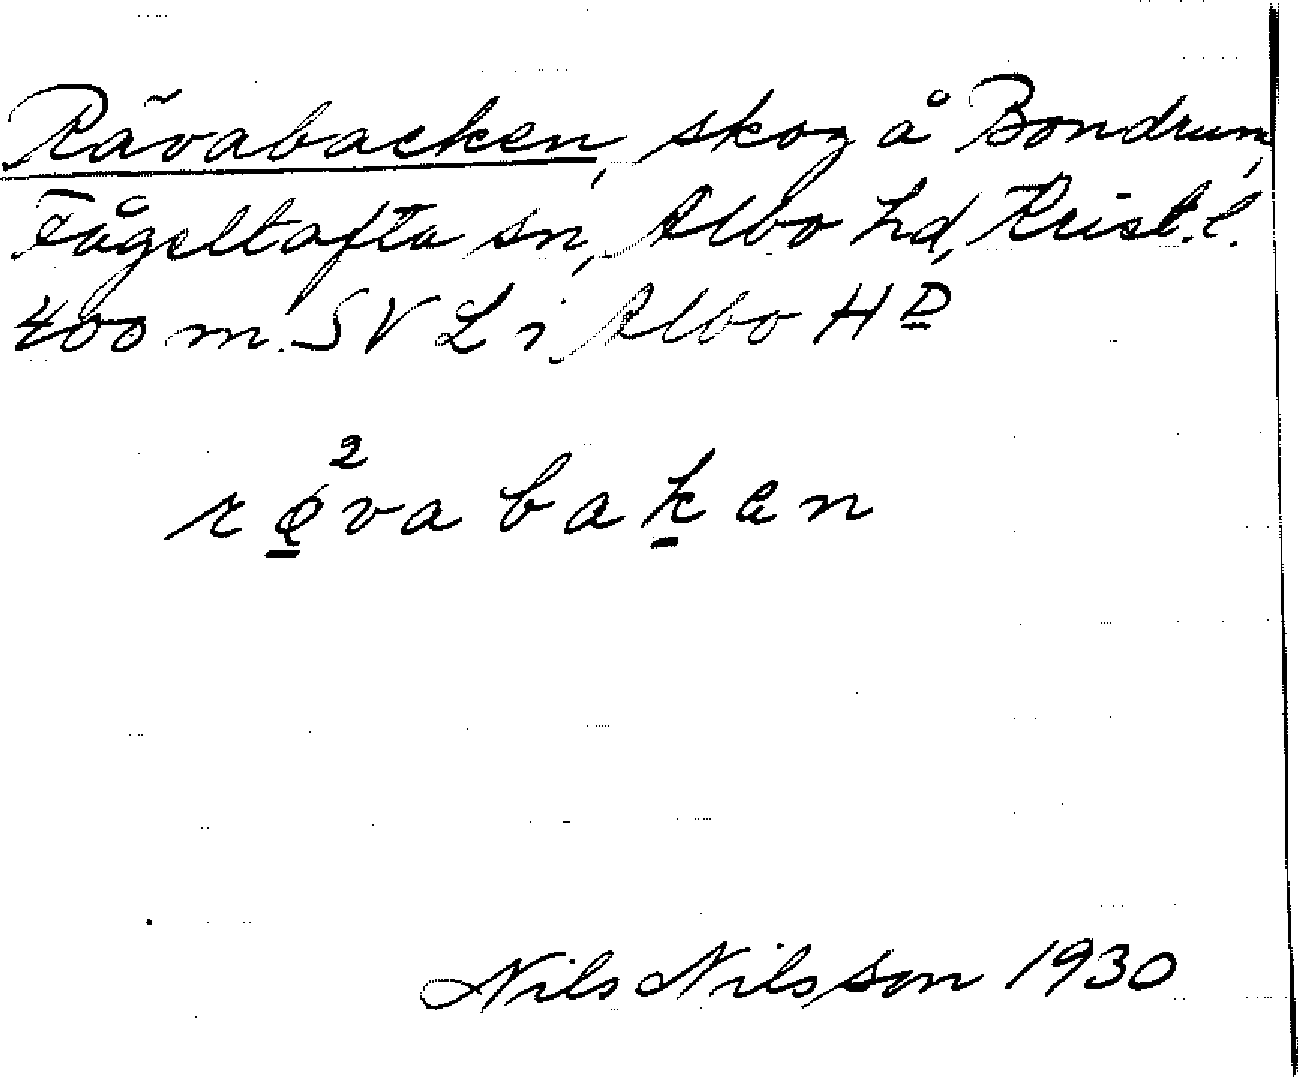 Rävabacken, skog å Bondrum,
Fågeltofta sn, Albo hd, Krist. l.
400 m. SV L i Albo HD
2
røva bakan
Nils Nilsson 1930